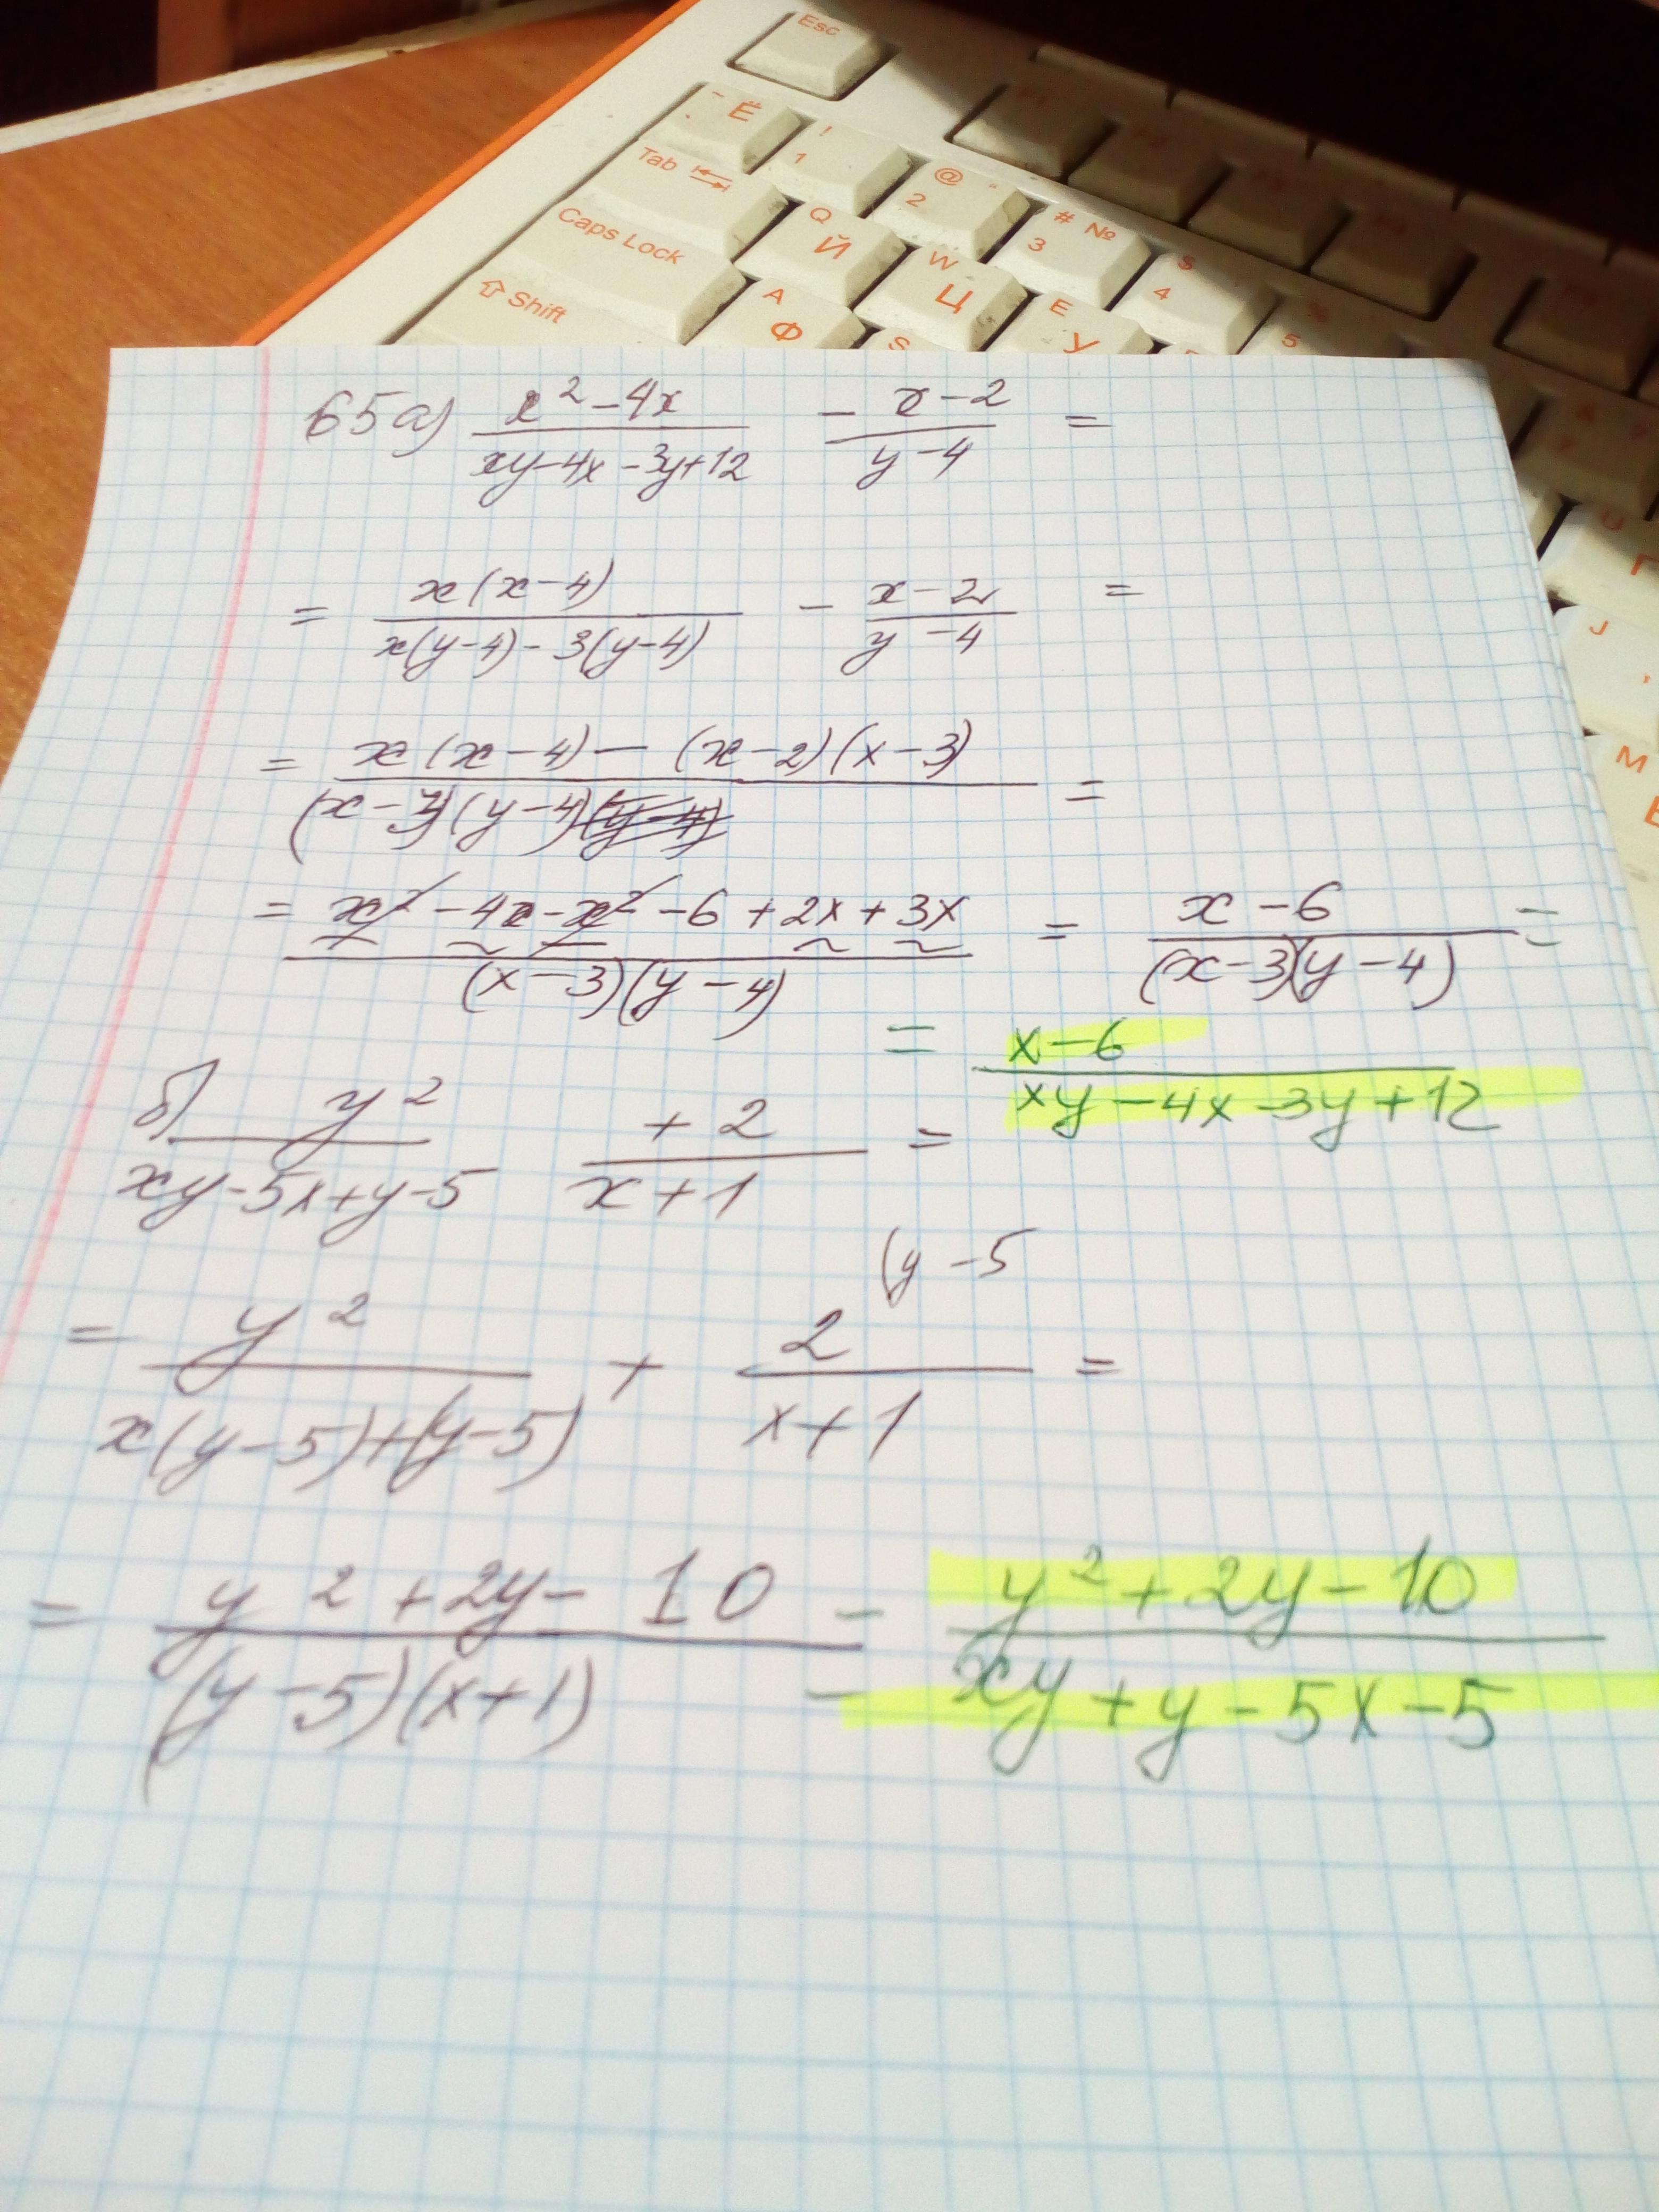 Esc
~ ` Ё ! 1 @ " 2 # № 3 $ 4 5
Tab Q Й W Ц E У
Caps Lock A Ф S
⇧ Shift
65 а) (x² - 4x)/(xy - 4x - 3y + 12) - (x - 2)/(y - 4) =
= x(x - 4)/(x(y - 4) - 3(y - 4)) - (x - 2)/(y - 4) =
= (x(x - 4) - (x - 2)(x - 3))/((x - 3)(y - 4)) =
= (x² - 4x - x² - 6 + 2x + 3x)/((x - 3)(y - 4)) = (x - 6)/((x - 3)(y - 4)) =
= (x - 6)/(xy - 4x - 3y + 12)
б) y²/(xy - 5x + y - 5) + 2/(x + 1) =
(y - 5
= y²/(x(y - 5) + (y - 5)) + 2/(x + 1) =
= (y² + 2y - 10)/((y - 5)(x + 1)) = (y² + 2y - 10)/(xy + y - 5x - 5)